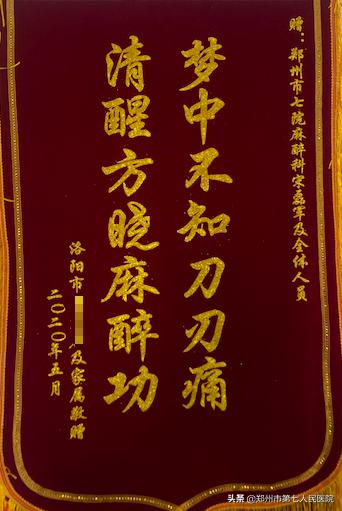 赠：郑州市七院麻醉科宋磊军及全体人员
梦中不知刀刃痛
清醒方晓麻醉功
洛阳市
及家属敬赠
二〇二〇年五月
头条@郑州市第七人民医院